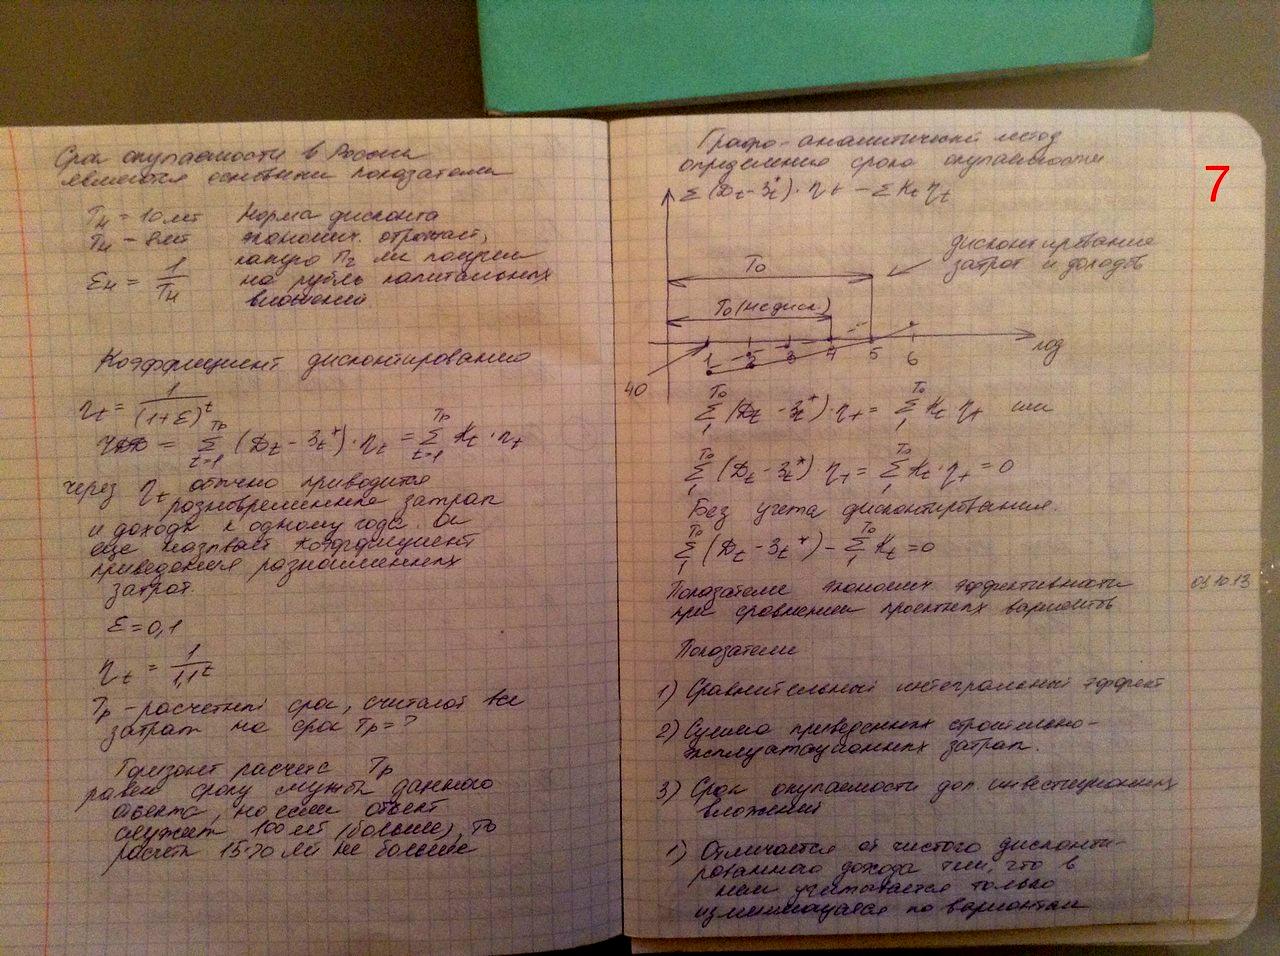 Срок окупаемости в России
является основным показателем
Tн = 10 лет Норма дисконта
Tн - 8 лет экономич. отражает,
какую ли получим
Eн = 1/Tн на рубль капитальных
вложений.
Коэффициент дисконтирования
ηt = 1/(1+E)^t
ЧДД = Σ(t=1, Tр) (Dt - Зt*)·ηt = Σ(t=1, Tр) Kt·ηt
через ηt обычно приводится
разновременные затрат
и доходы к одному году. Он
еще называт коэффициент
приведения
затрат.
E = 0,1
ηt = 1/1,1^t
Tр - расчетный срок, считают все
затрат на срок Tр = ?
Горизонт расчета Tр
равен сроку службы данного
объекта, но если объект
служит 100 лет (больше), то
расчет 15-20 лет не больше
7
Графо-аналитический метод
определения срока окупаемости
Σ(Dt - Зt*)·ηt - ΣKt ηt
дисконтирование
затрат и доходов
To
To (не диск.)
1 2 3 4 5 6 год
40
Σ(1, To) (Dt - Зt*)·ηt = Σ(1, To) Kt ηt или
Σ(1, To) (Dt - Зt*) ηt = Σ(1, To) Kt·ηt = 0
Без учета дисконтирования.
Σ(1, To) (Dt - Зt*) - Σ(1, To) Kt = 0
Показатели экономич. эффективности 03.10.13
при сравнении проектных вариантов
Показатели
1) Сравнительный интегральный эффект
2) Сумма приведенных строительно-
эксплуатационных затрат.
3) Срок окупаемости доп. инвестиционных
вложений
1) Отличается от чистого дисконти-
рованного дохода тем, что в
нем учитывается только
изменяющаяся по вариантам